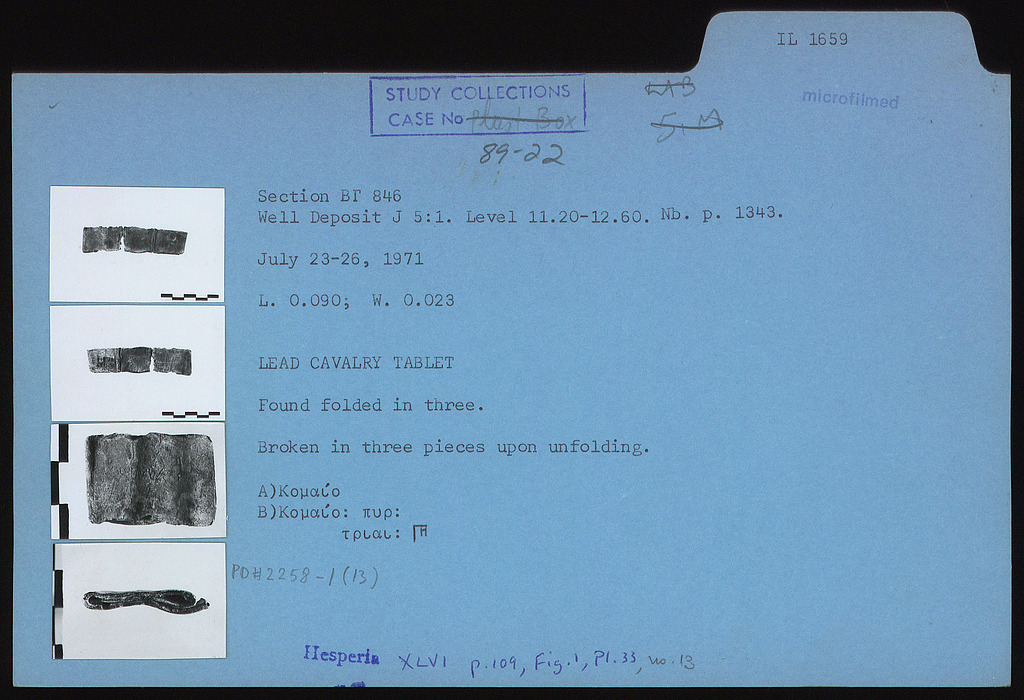 IL 1659
STUDY COLLECTIONS
CASE No Plast Box
89-22
LAB
5, M
microfilmed
Section ΒΓ 846
Well Deposit J 5:1. Level 11.20-12.60. Nb. p. 1343.
July 23-26, 1971
L. 0.090; W. 0.023
LEAD CAVALRY TABLET
Found folded in three.
Broken in three pieces upon unfolding.
A)Κομαίο
B)Κομαίο: πυρ:
τριαι: 𐅅
PD#2258-1(13)
Hesperia XLVI p.109, Fig.1, Pl.33, no.13